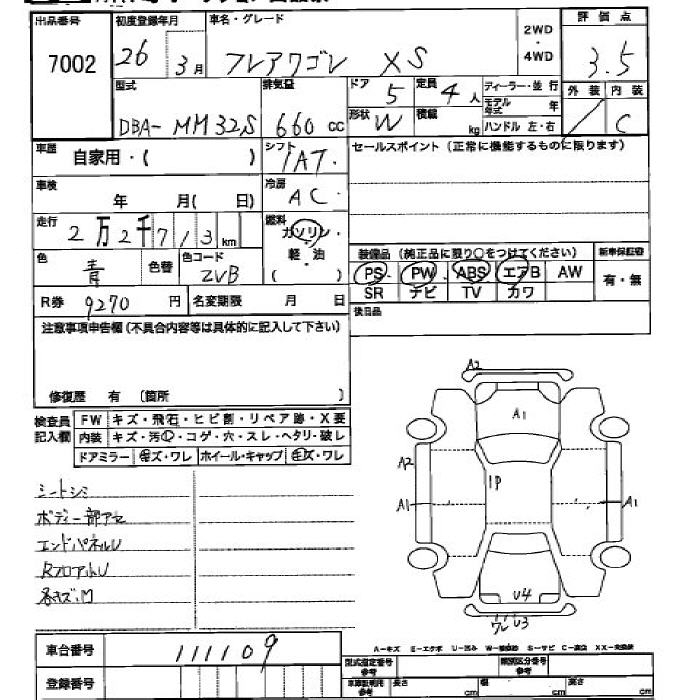 出品番号 初度登録年月 車名・グレード 2WD・4WD 評価点
7002 26 3月 フレアワゴン XS 3.5
型式 排気量 ドア 5 定員 4人 ディーラー・並行 外装 内装
モデル年式 年
DBA-MM32S 660cc 形状 W 積載 kg ハンドル 左・右 C
車歴 自家用・( ) シフト IAT セールスポイント(正常に機能するものに限ります)
車検 年 月( 日) 冷房 AC
走行 2万2千713km 燃料 ガソリン・軽・油 ( )
色 青 色替 色コード ZVB
装備品(純正品に限り○をつけてください) 新車保証書
PS PW ABS エアB AW 有・無
SR ナビ TV カワ
R券 9270円 名変期限 月 日 後日品
注意事項申告欄(不具合内容等は具体的に記入して下さい)
修復歴 有 〔箇所 〕
検査員記入欄 FW キズ・飛石・ヒビ割・リペア跡・X要
内装 キズ・汚・コゲ・穴・スレ・ヘタリ・破レ
ドアミラー キズ・ワレ ホイール・キャップ キズ・ワレ
シートシミ
ボディ一部アセ
エンドパネルU
RフロアルU
各キズ凹
A2
A1
A2
1P
A1
A1
U4
ワレU3
車台番号 111109
登録番号
A-キズ E-エクボ U-凹み W-補修跡 S-サビ C-腐食 XX-交換済
型式指定番号 参考 類別区分番号 参考
車庫証明用 参考 長さ cm 幅 cm 高さ cm